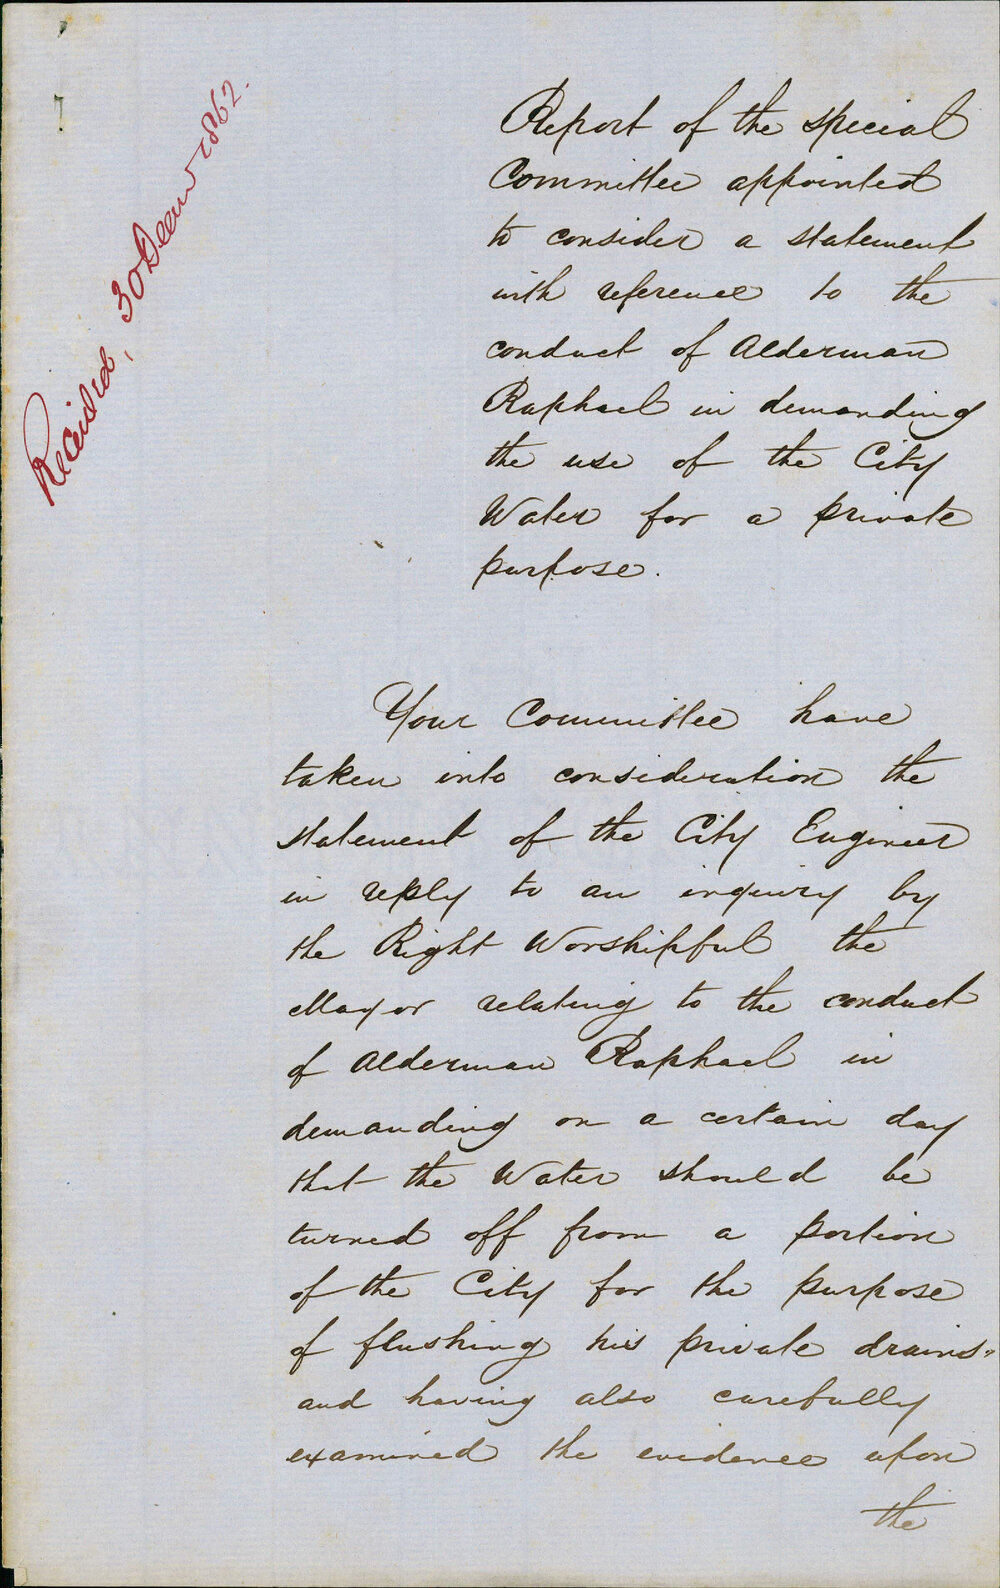 Received, 30 Decemr 1862.
Report of the special
Committee appointed
to consider a statement
with reference to the
conduct of Alderman
Raphael in demanding
the use of the City
Water for a private
purpose.
Your Committee have
taken into consideration the
statement of the City Engineer
in reply to an inquiry by
the Right Worshipful the
Mayor relating to the conduct
of Alderman Raphael in
demanding on a certain day
that the Water should be
turned off from a portion
of the City for the purpose
of flushing his private drains.
and having also carefully
examined the evidence upon
the